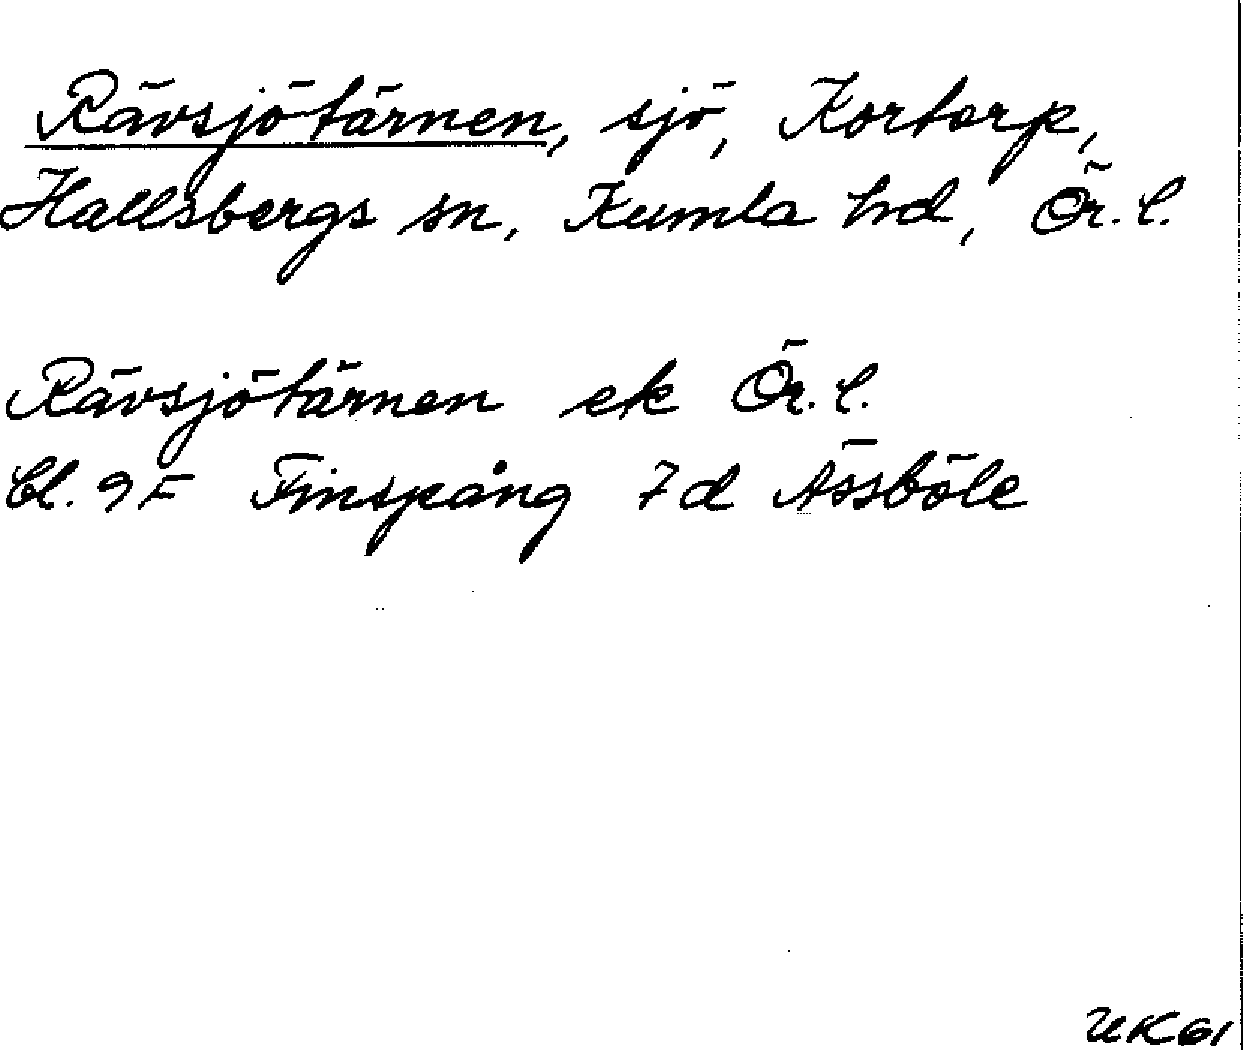 Rävsjötärnen, sjö, Kortorp,
Hallsbergs sn, Kumla hd, Ör. l.
Rävsjötärnen ek Ör. l.
bl. 9F Finspång 7d Ässböle
UK61